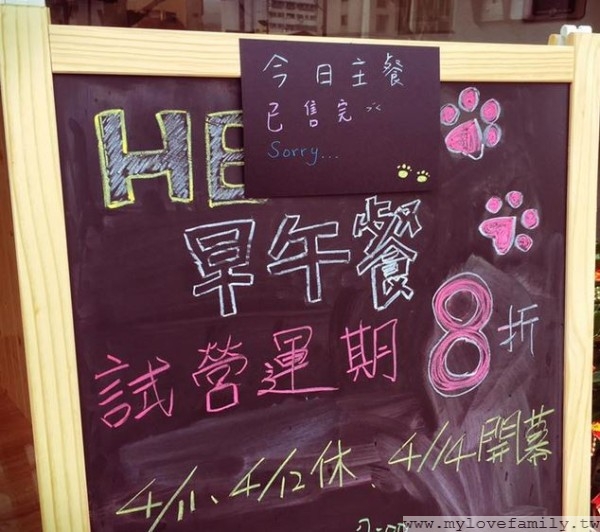 今日主餐
已售完
Sorry...
HE
早午餐
試營運期8折
4/11、4/12休、4/14開幕
www.mylovefamily.tw